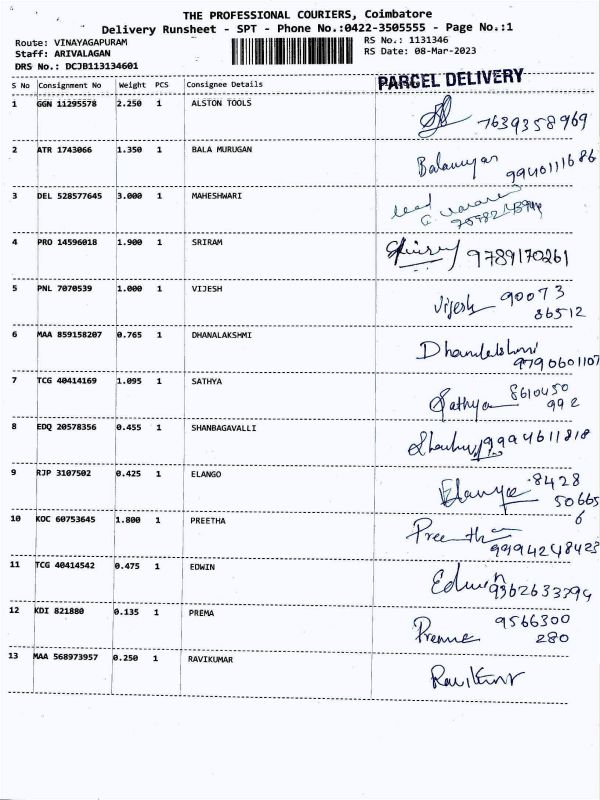 THE PROFESSIONAL COURIERS, Coimbatore
Delivery Runsheet - SPT - Phone No.:0422-3505555 - Page No.:1
Route: VINAYAGAPURAM RS No.: 1131346
Staff: ARIVALAGAN RS Date: 08-Mar-2023
DRS No.: DCJB113134601
PARCEL DELIVERY
S No Consignment No Weight PCS Consignee Details
1 GGN 11295578 2.250 1 ALSTON TOOLS
7639358969
2 ATR 1743066 1.350 1 BALA MURUGAN
Balamurgan
9940111686
3 DEL 528577645 3.000 1 MAHESHWARI
4 PRO 14596018 1.900 1 SRIRAM
9789170261
5 PNL 7070539 1.000 1 VIJESH
Vijesh 90073
86512
6 MAA 859158207 0.765 1 DHANALAKSHMI
Dhanalakshmi
9790601107
7 TCG 40414169 1.095 1 SATHYA
8610450
Sathya 992
8 EDQ 20578356 0.455 1 SHANBAGAVALLI
9994611818
9 RJP 3107502 0.425 1 ELANGO
8428
50665
6
10 KOC 60753645 1.800 1 PREETHA
Preetha
9994248423
11 TCG 40414542 0.475 1 EDWIN
Edwin 9362633794
12 KDI 821880 0.135 1 PREMA
9566300
Prema 280
13 MAA 568973957 0.250 1 RAVIKUMAR
Ravikumar